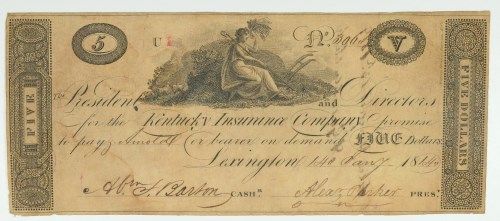 5 U I No. 396 V
The President and Directors
for the Kentucky Insurance Company promise
to pay Arnold or bearer on demand FIVE Dollars
Lexington Jany 18
Wm. S. Barton CASHR. Alexr Parker PREST.
FIVE
FIVE DOLLARS